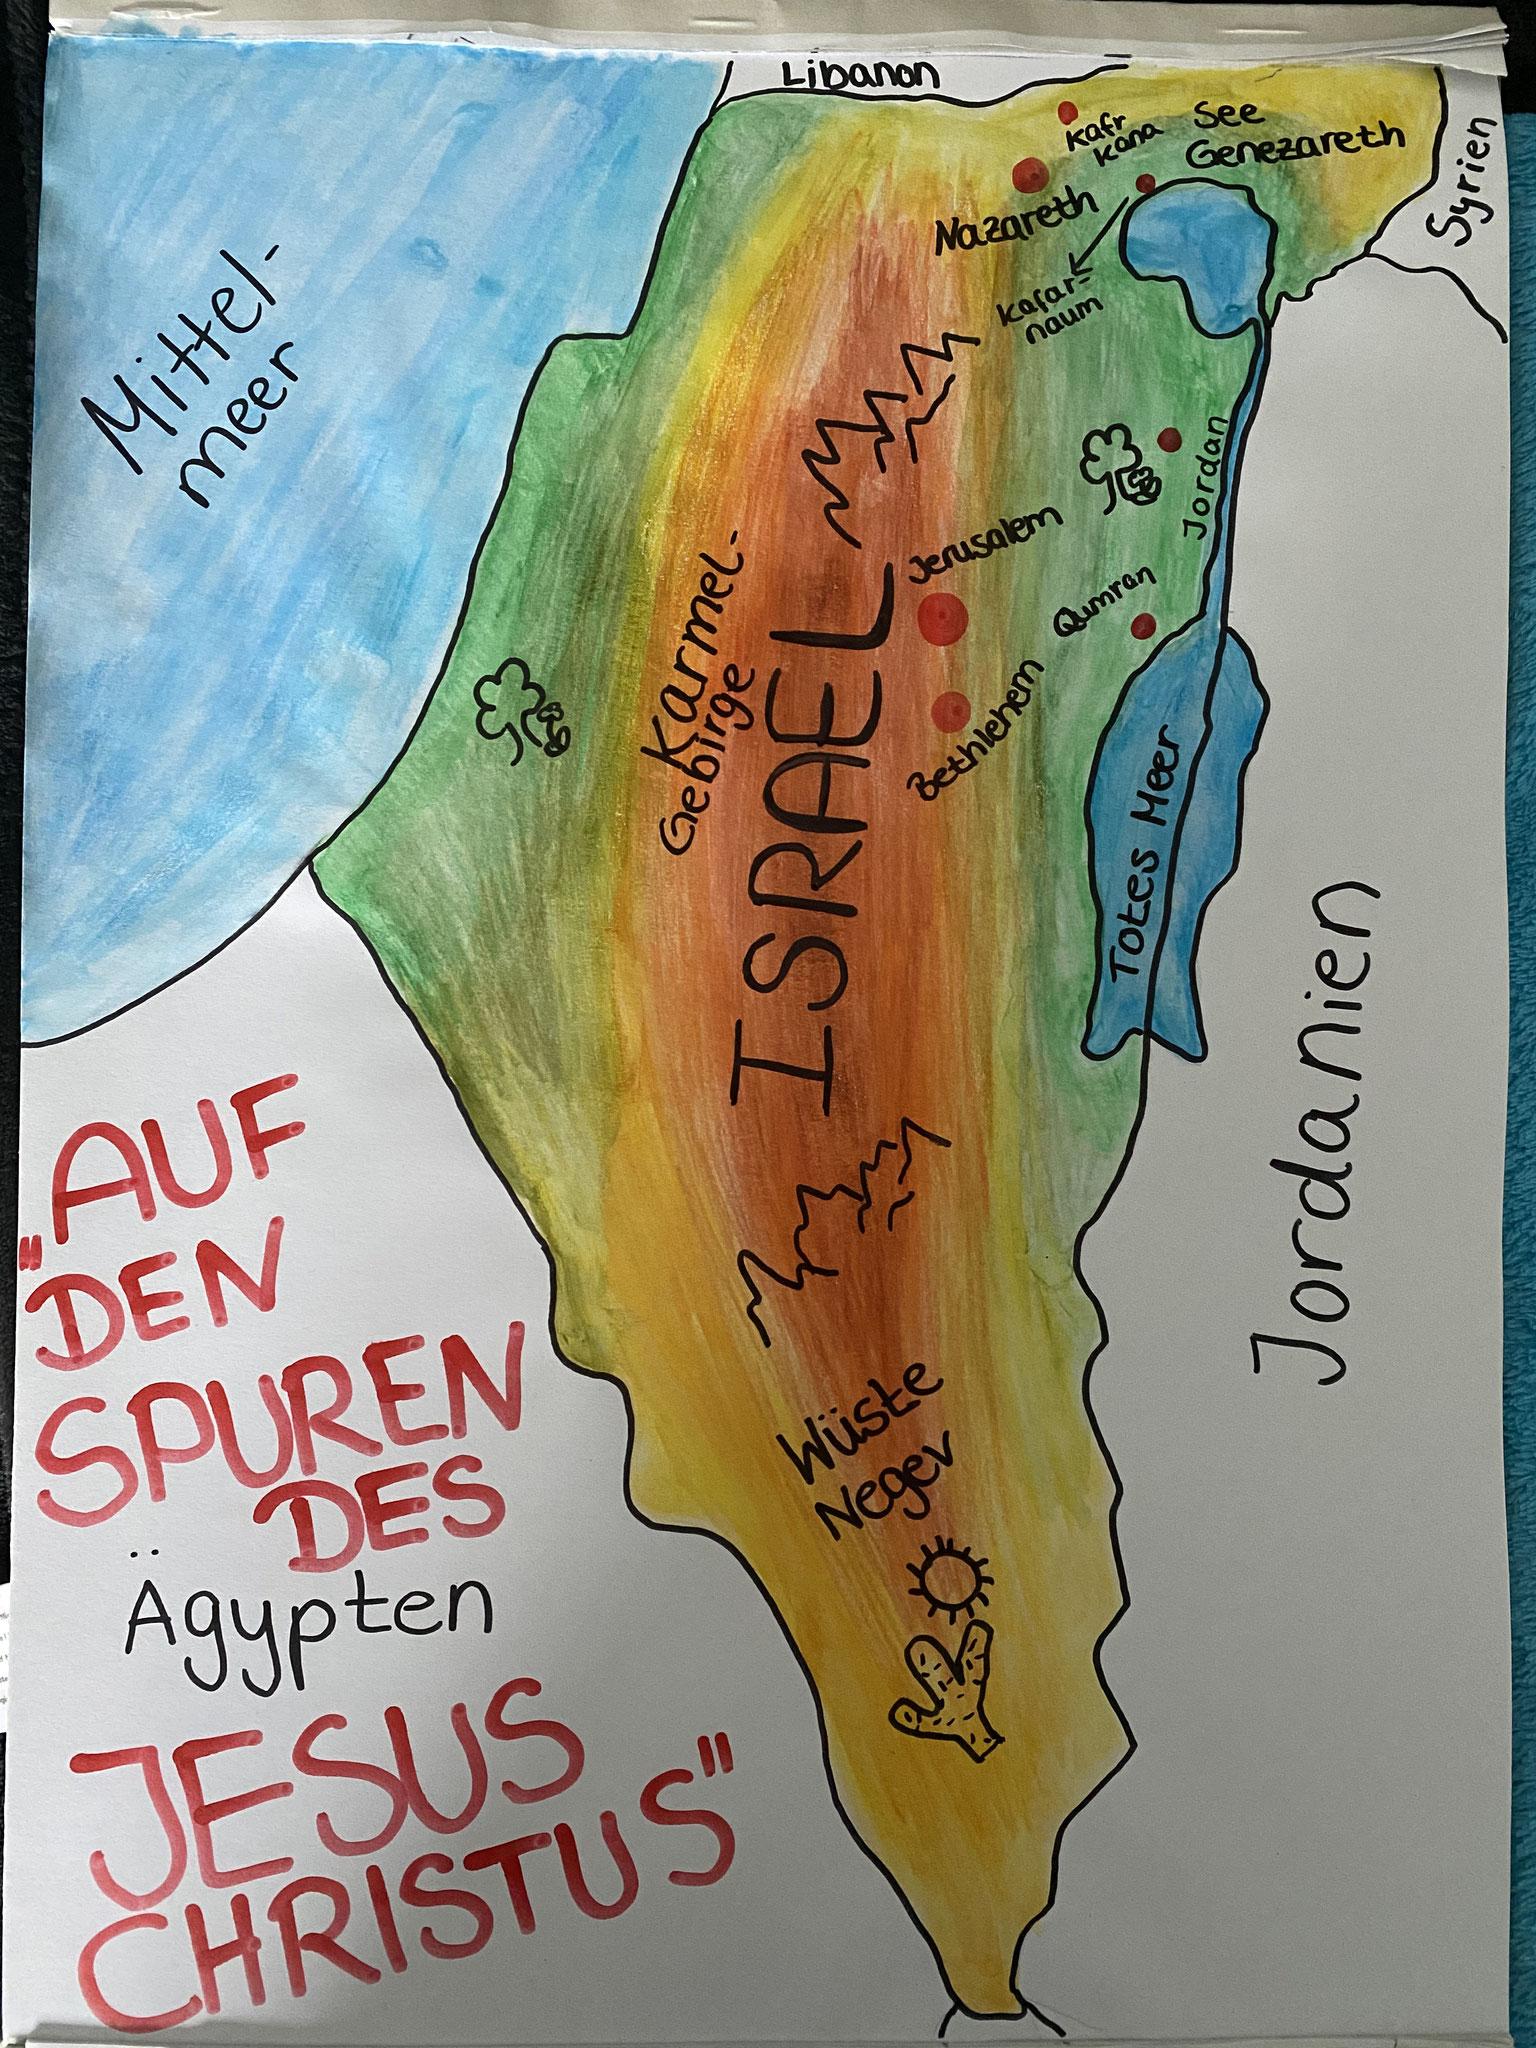 Libanon
Kafr
Kana
See
Genezareth
Syrien
Nazareth
Kafar-
naum
Mittel-
meer
Jordan
Jerusalem
Qumran
Karmel-
Gebirge
ISRAEL
Bethlehem
Totes Meer
Jordanien
"AUF
DEN
SPUREN
DES
Ägypten
JESUS
CHRISTUS"
Wüste
Negev